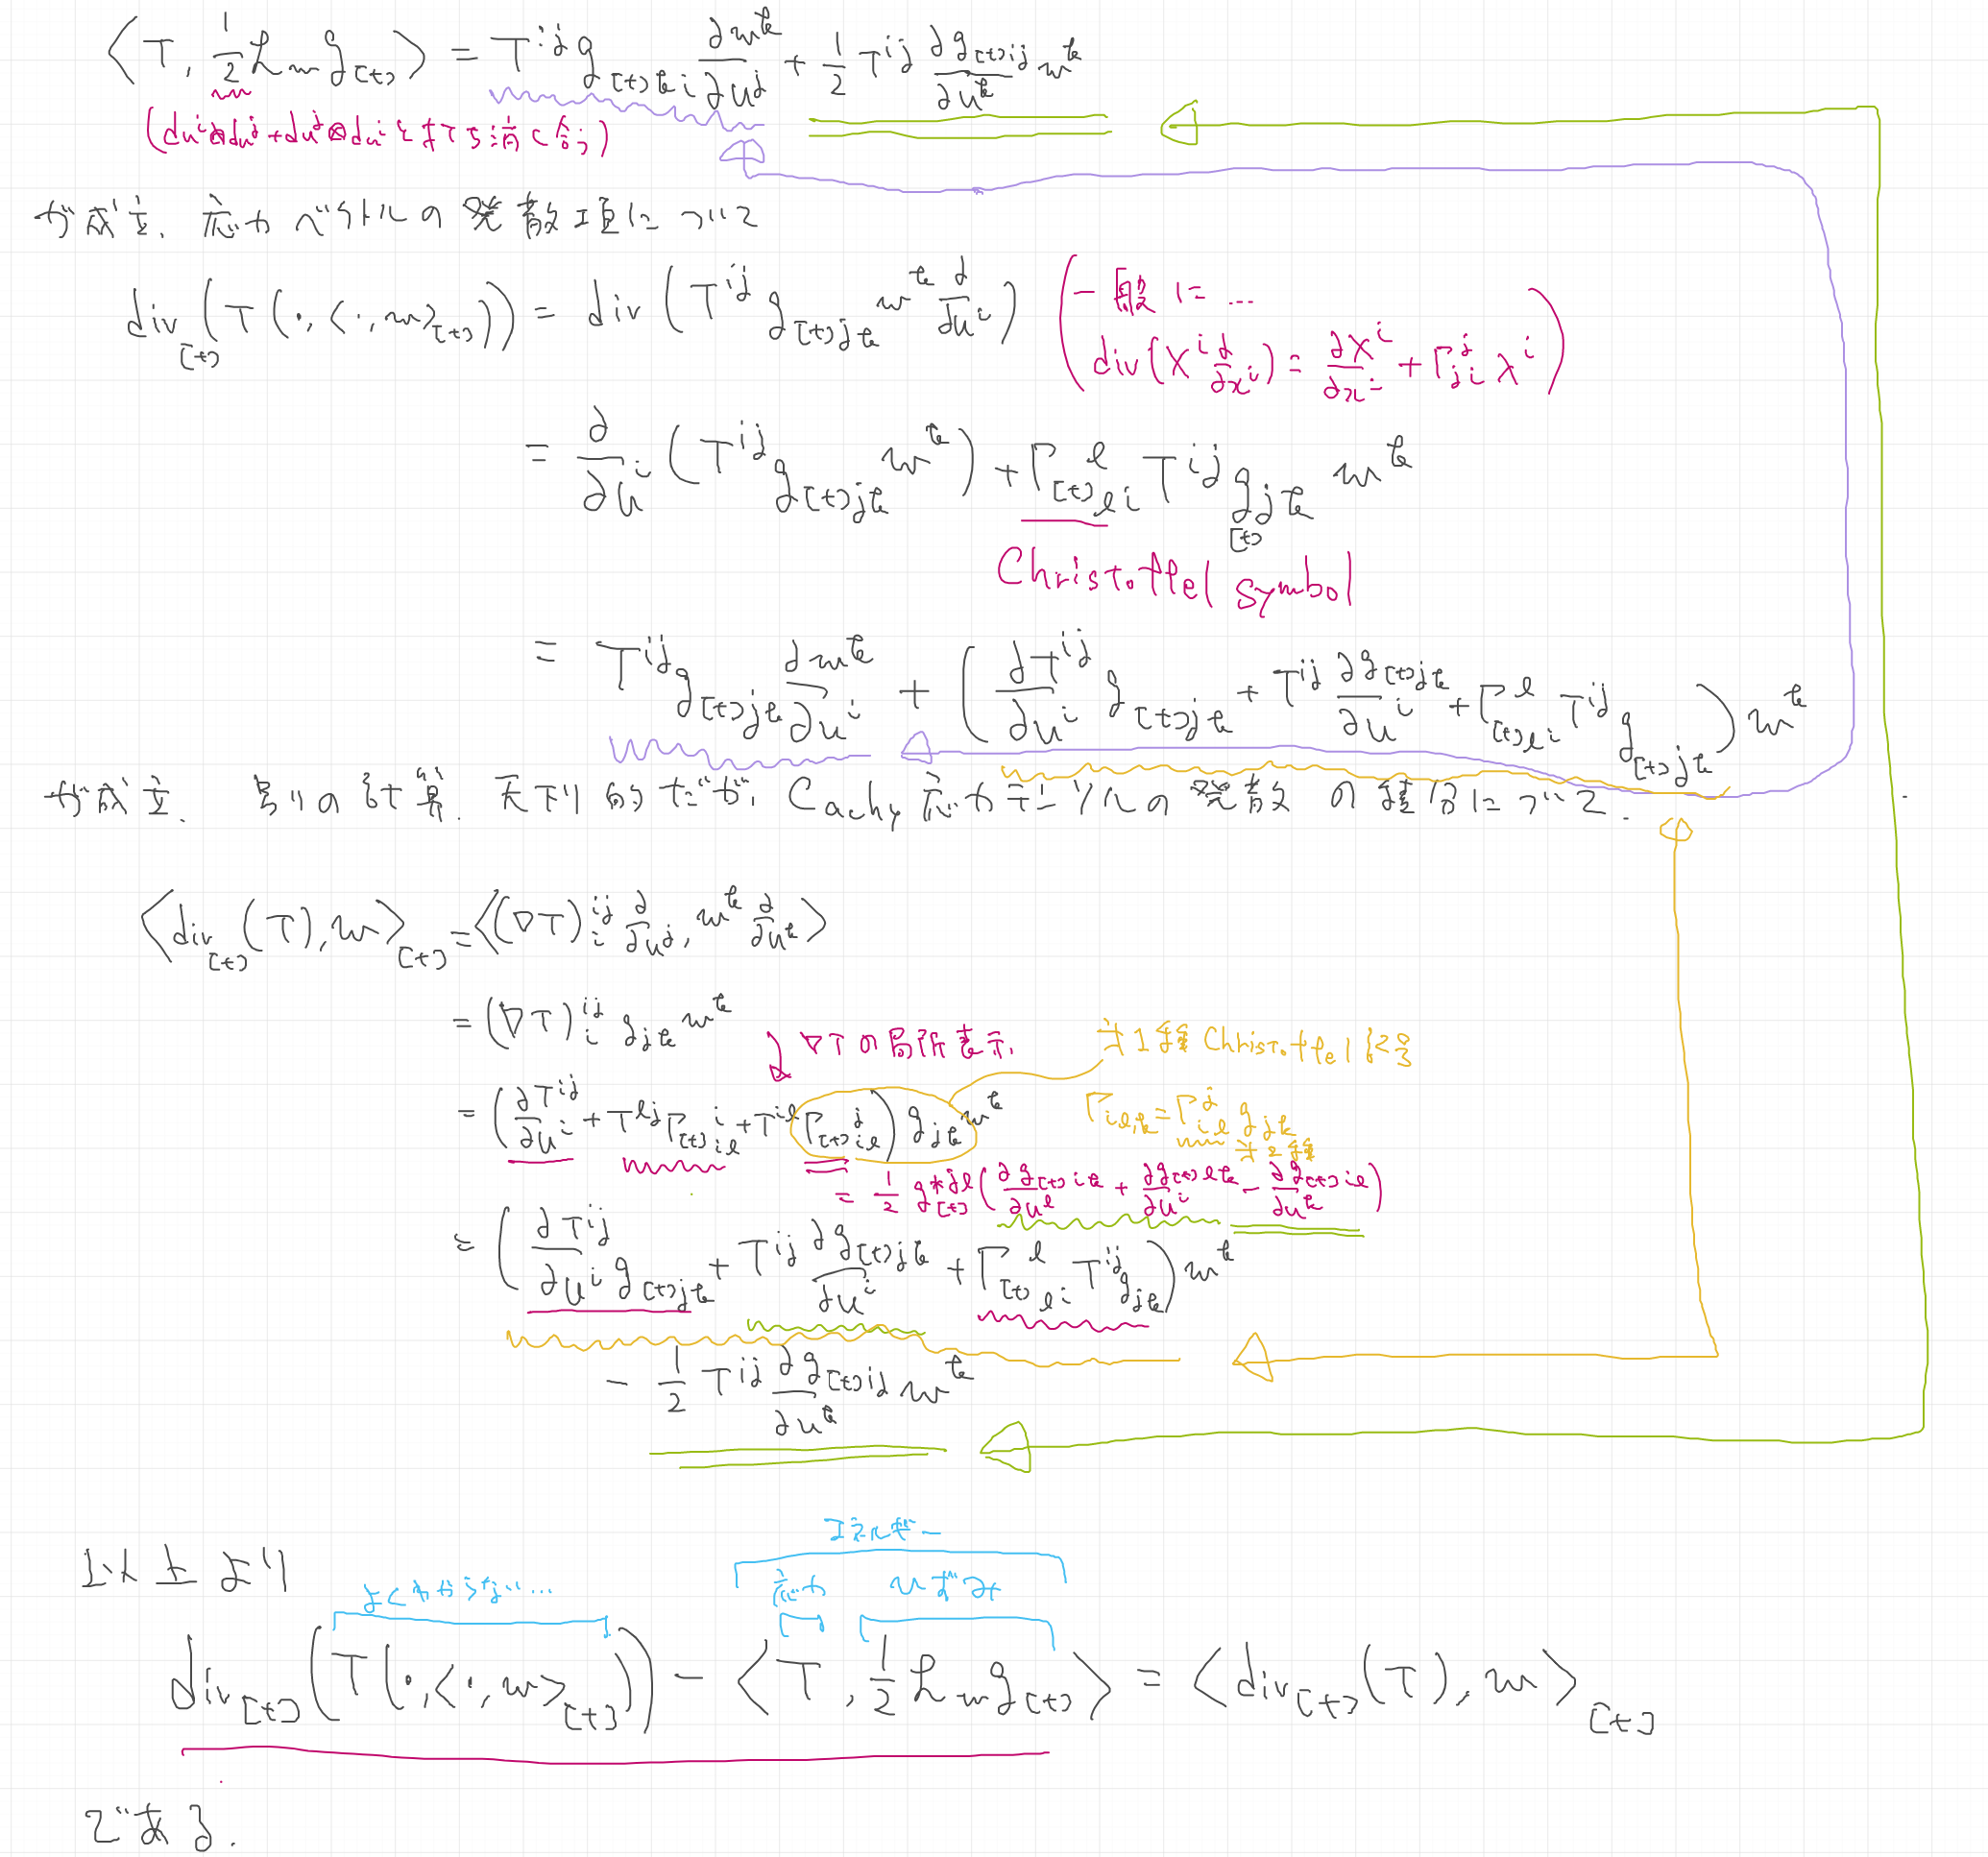 ⟨T, 1/2 ℒ_w g_[t]⟩ = T^{ij} g_{[t]ki} ∂w^k/∂u^j + 1/2 T^{ij} ∂g_{[t]ij}/∂u^k w^k
(du^i⊗du^j + du^j⊗du^i とまで打ち消し合う)
が成立. 応力ベクトルの発散項について
div_[t](T(·,<·,w>_[t])) = div(T^{ij} g_{[t]jk} w^k ∂/∂u^i)
(一般に...
div(X^i ∂/∂x^i) = ∂X^i/∂x^i + Γ^j_{ji} X^i)
= ∂/∂u^i (T^{ij} g_{[t]jk} w^k) + Γ_{[t]}^l_{li} T^{ij} g_{[t]jk} w^k
Christoffel symbol
= T^{ij} g_{[t]jk} ∂w^k/∂u^i + (∂T^{ij}/∂u^i g_{[t]jk} + T^{ij} ∂g_{[t]jk}/∂u^i + Γ_{[t]}^l_{li} T^{ij} g_{[t]jk}) w^k
が成立. 別の計算. 天下り的だが, Cachy 応力テンソルの発散の積分について.
⟨div_[t](T), w⟩_[t] = ⟨(∇T)_i^{ij} ∂/∂u^j, w^k ∂/∂u^k⟩
= (∇T)_i^{ij} g_{jk} w^k
∇Tの局所表示.
第1種 Christoffel 記号
= (∂T^{ij}/∂u^i + T^{lj} Γ_{[t]}^i_{il} + T^{il} Γ_{[t]}^j_{il}) g_{jk} w^k
Γ_{il,k} = Γ^j_{il} g_{jk}
第2種
= 1/2 g*^{jl}_[t] (∂g_{[t]ik}/∂u^l + ∂g_{[t]lk}/∂u^i − ∂g_{[t]il}/∂u^k)
= (∂T^{ij}/∂u^i g_{[t]jk} + T^{ij} ∂g_{[t]jk}/∂u^i + Γ_{[t]}^l_{li} T^{ij} g_{jk}) w^k
− 1/2 T^{ij} ∂g_{[t]ij}/∂u^k w^k
以上より
エネルギー
よくわからない... 応力 ひずみ
div_[t](T(·,<·,w>_[t])) − ⟨T, 1/2 ℒ_w g_[t]⟩ = ⟨div_[t](T), w⟩_[t]
である.